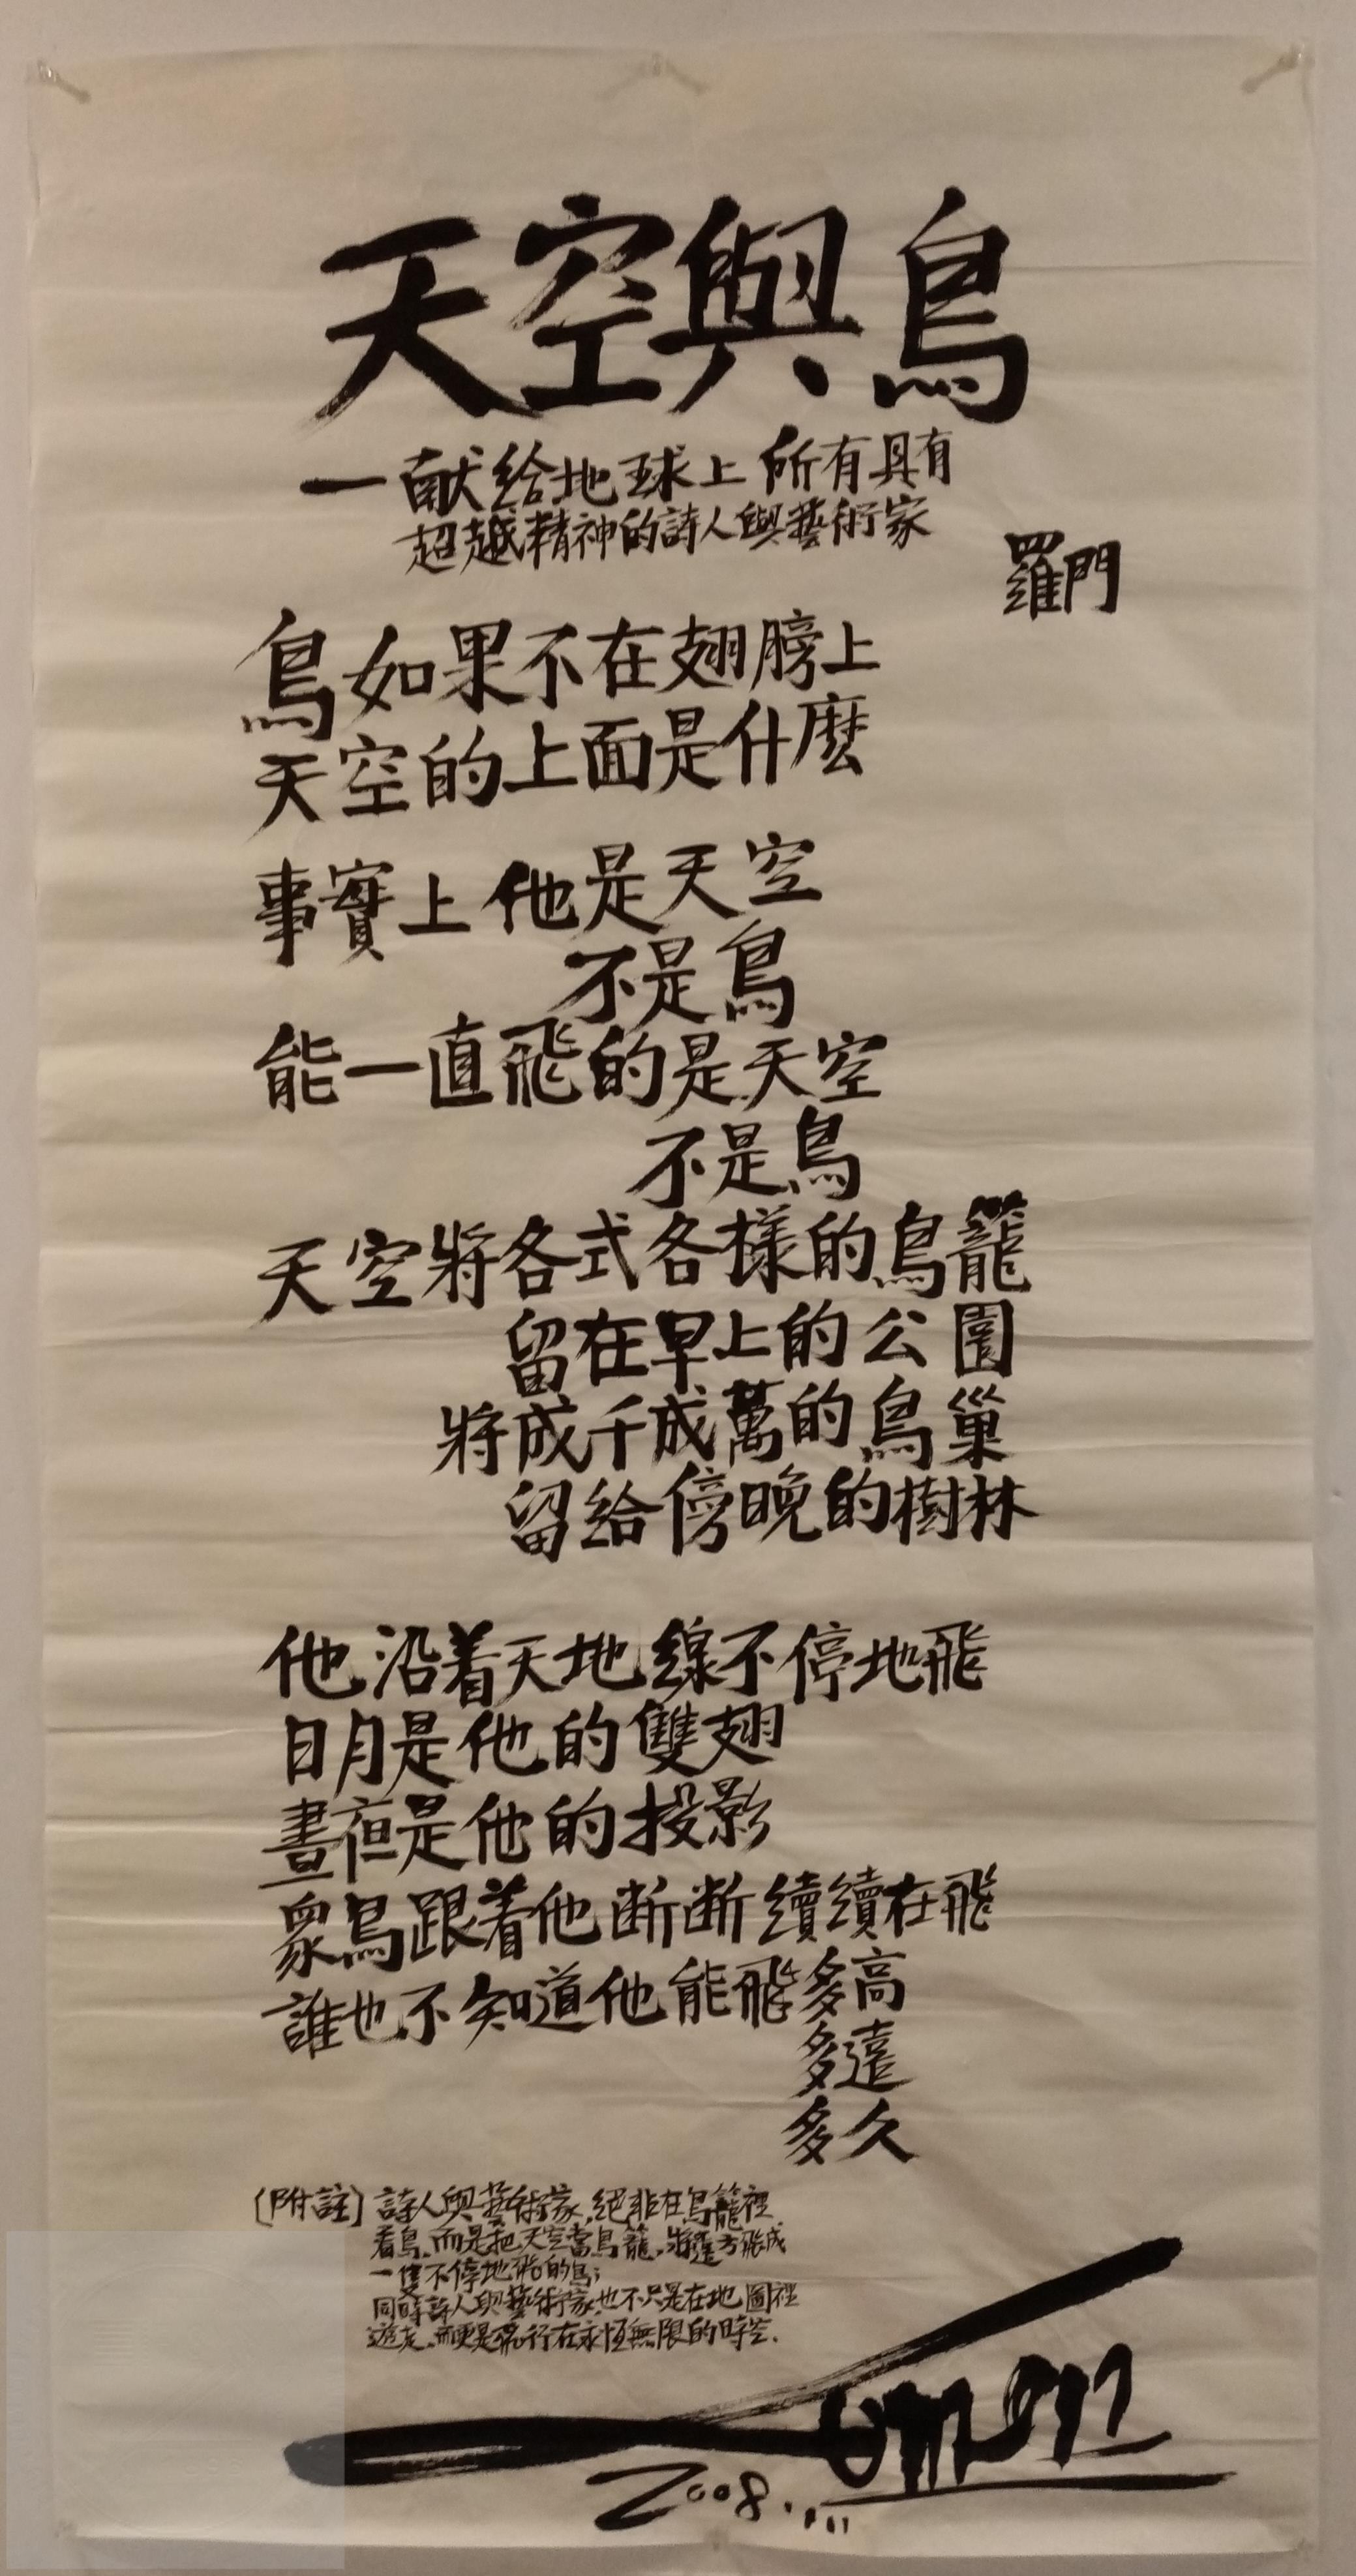 天空與鳥
一献給地球上所有具有
超越精神的詩人與藝術家
羅門
鳥如果不在翅膀上
天空的上面是什麼
事實上他是天空
不是鳥
能一直飛的是天空
不是鳥
天空將各式各樣的鳥籠
留在早上的公園
將成千成萬的鳥巢
留給傍晚的樹林
他沿着天地線不停地飛
日月是他的雙翅
晝夜是他的投影
眾鳥跟着他断断續續在飛
誰也不知道他能飛多高
多遠
多久
〔附註〕詩人與藝術家,絕非在鳥籠裡
看鳥,而是把天空當鳥籠,將遠方飛成
一隻不停地飛的鳥;
同時詩人與藝術家,也不只是在地圖裡
遊走,而更是飛行在永恆無限的時空.
Lomen
2008....